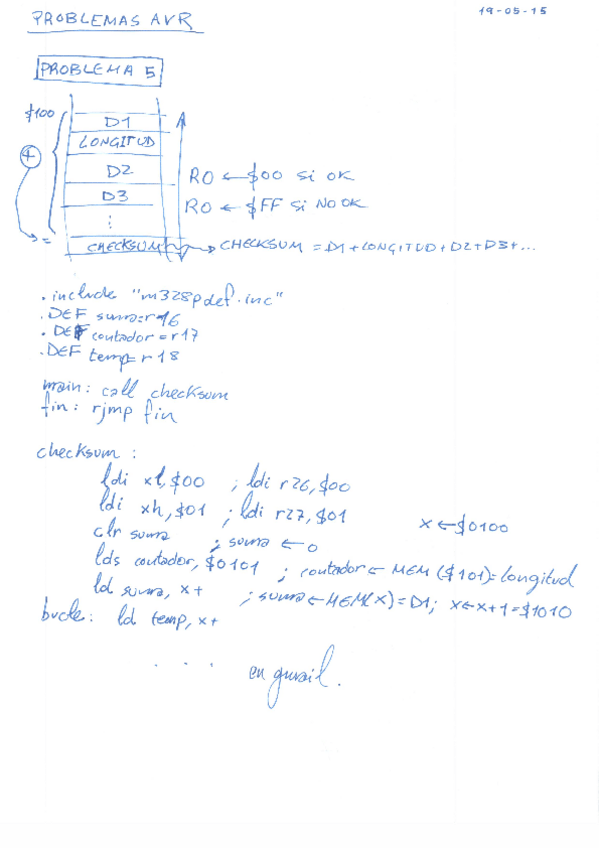 PROBLEMAS AVR
19-05-15
PROBLEMA 5
$100
D1
LONGITUD
D2
D3
⋮
CHECKSUM
+
=
R0 ← $00 si OK
R0 ← $FF si NO OK
CHECKSUM = D1+LONGITUD+D2+D3+...
.include "m328pdef.inc"
.DEF suma=r16
.DEF contador=r17
.DEF temp=r18
main: call checksum
fin: rjmp fin
checksum:
ldi xl,$00 ; ldi r26,$00
ldi xh,$01 ; ldi r27,$01
x ← $0100
clr suma ; suma ← 0
lds contador, $0101 ; contador ← MEM($101)=longitud
ld suma, x+ ; suma ← MEM(x)=D1; x←x+1=$1010
bucle: ld temp, x+
. . . en